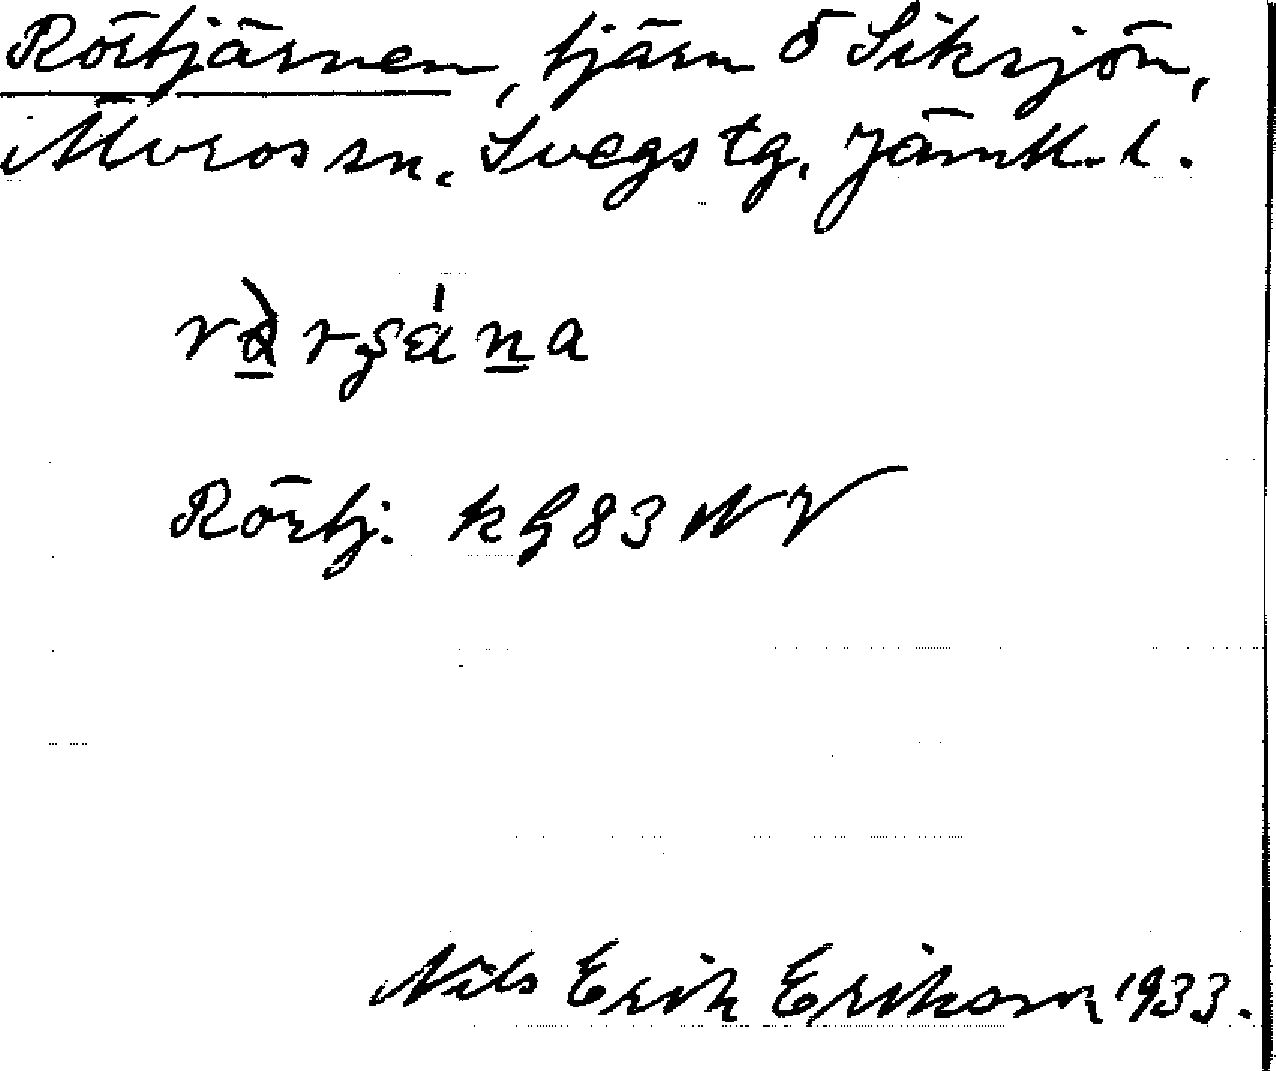 Rörtjärnen, tjärn ö Siksjön,
Älvros sn. Svegs tg. Jämtl. l.
Rörtj. kg 83 NV
Nils Erik Erikson 1933.